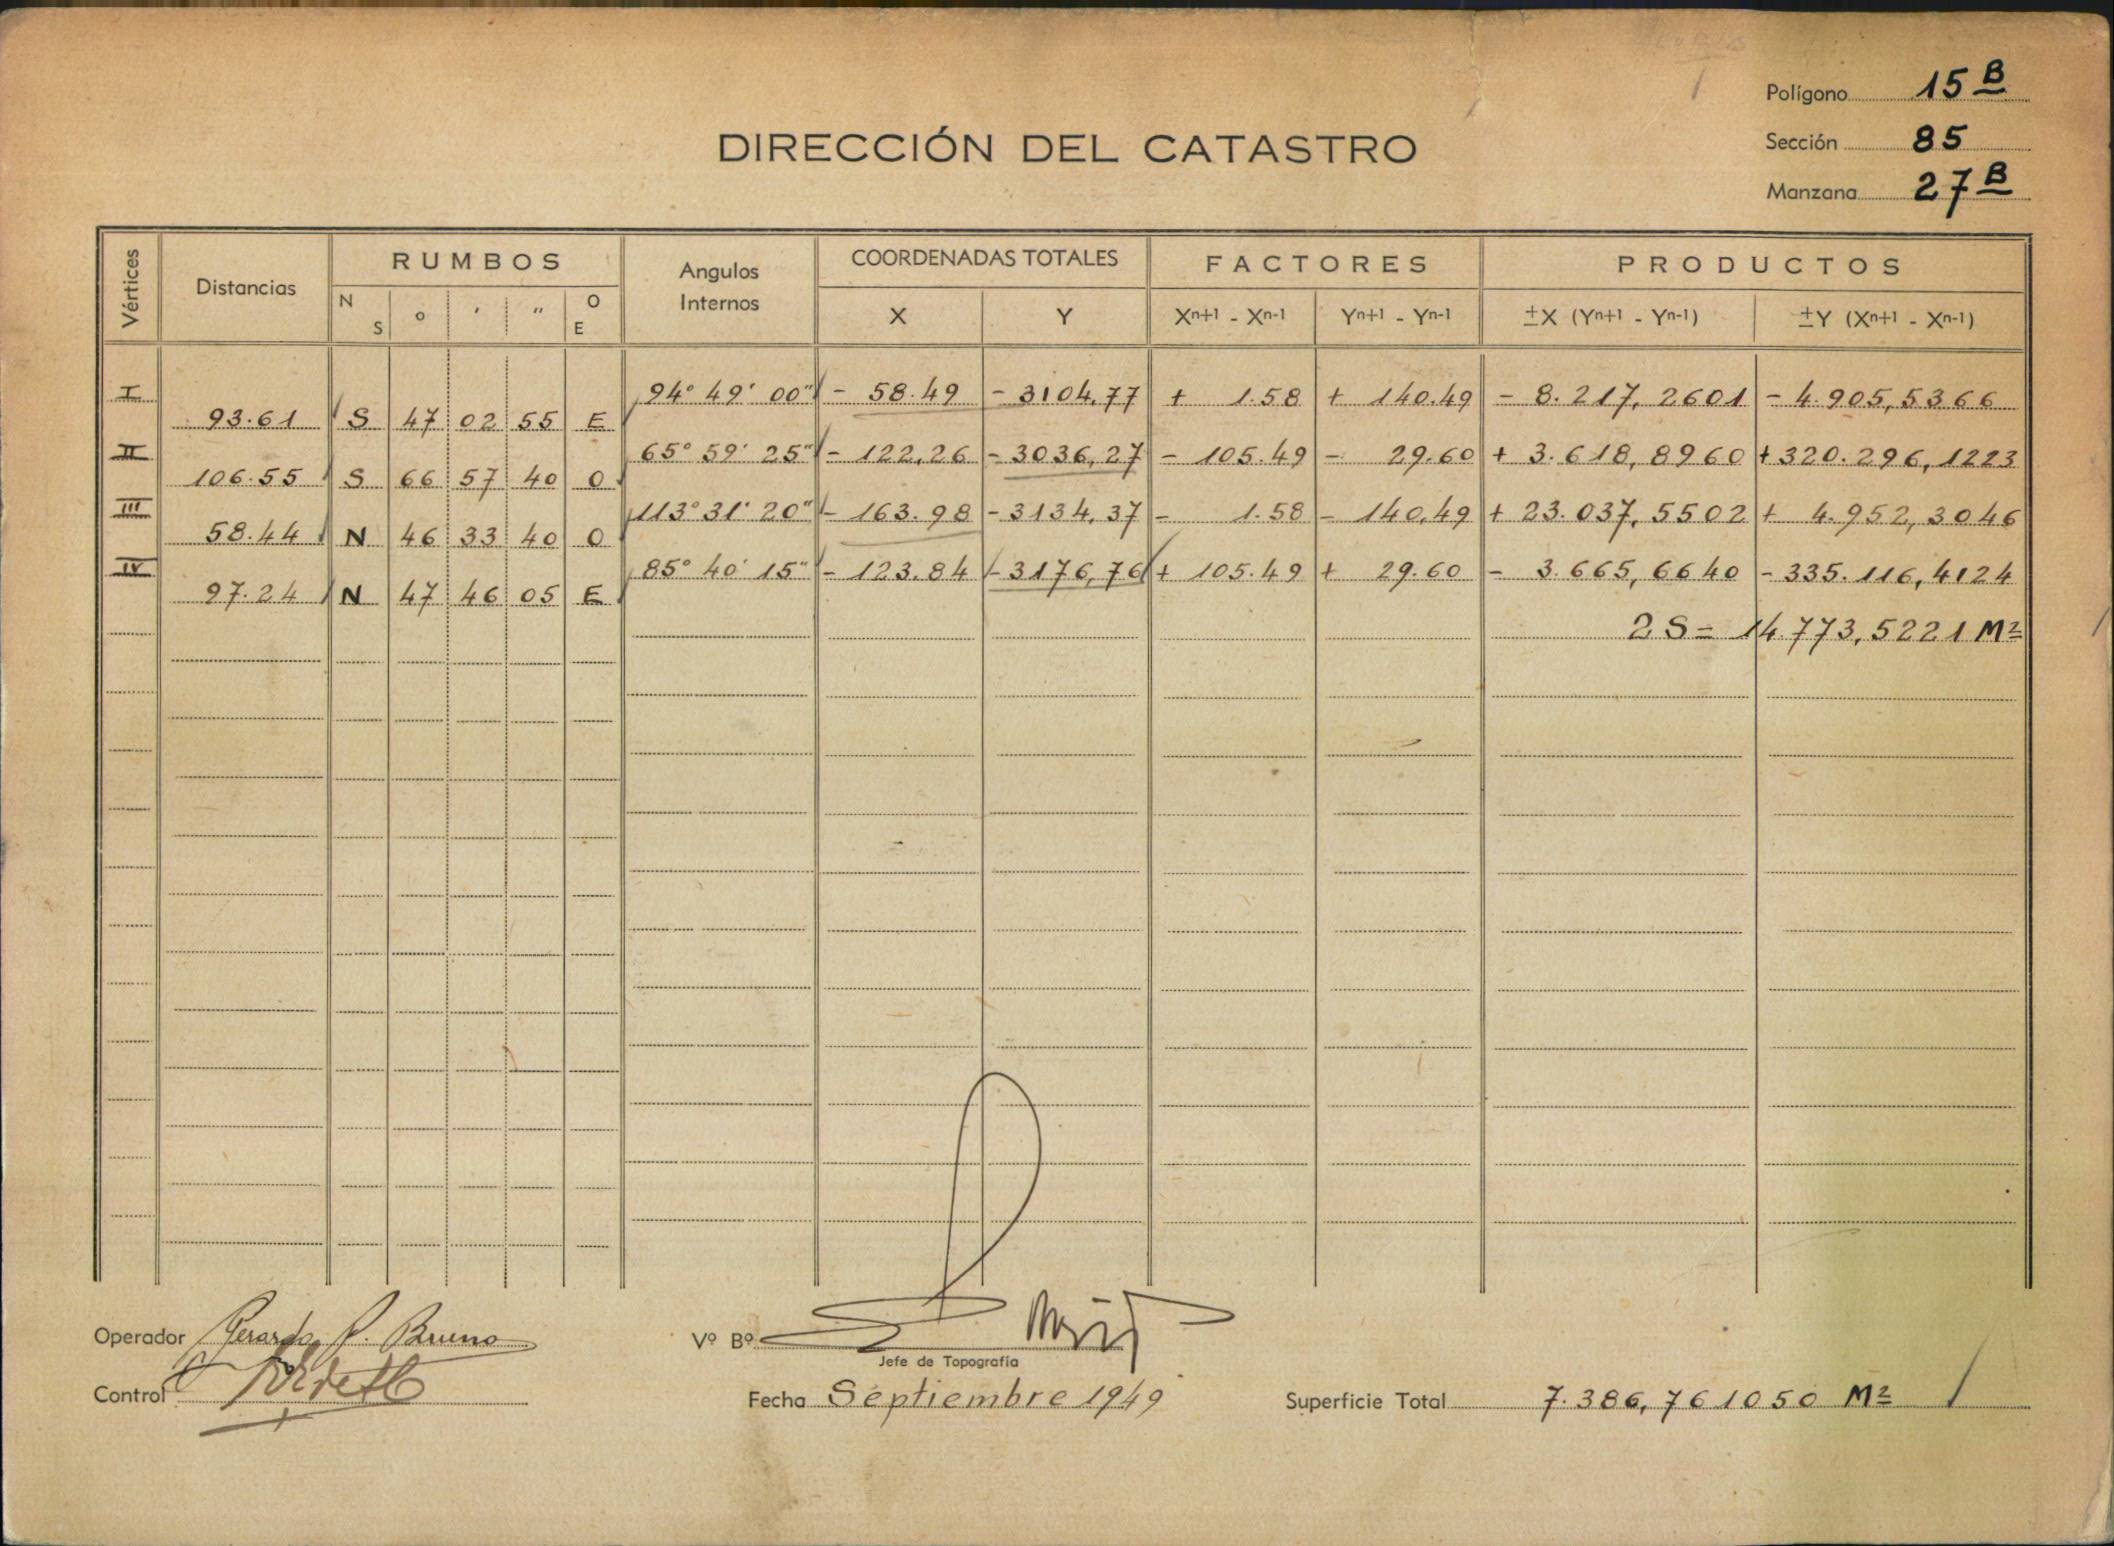 Polígono 15 B
DIRECCIÓN DEL CATASTRO
Sección 85
Manzana 27 B
Vértices Distancias RUMBOS Angulos Internos COORDENADAS TOTALES FACTORES PRODUCTOS
N S ° ' " O E X Y Xn+1 - Xn-1 Yn+1 - Yn-1 ±X (Yn+1 - Yn-1) ±Y (Xn+1 - Xn-1)
I 94° 49' 00" - 58.49 - 3104,77 + 1.58 + 140.49 - 8.217,2601 - 4.905,5366
93.61 S 47 02 55 E
II 65° 59' 25" - 122,26 - 3036,27 - 105.49 - 29.60 + 3.618,8960 + 320.296,1223
106.55 S 66 57 40 O
III 113° 31' 20" - 163.98 - 3134,37 - 1.58 - 140,49 + 23.037,5502 + 4.952,3046
58.44 N 46 33 40 O
IV 85° 40' 15" - 123.84 - 3176,76 + 105.49 + 29.60 - 3.665,6640 - 335.116,4124
97.24 N 47 46 05 E
2 S = 14.773,5221 M2
Operador Gerardo P. Bruno Vº Bº
Jefe de Topografía
Control Fecha Septiembre 1949 Superficie Total 7.386,761050 M2